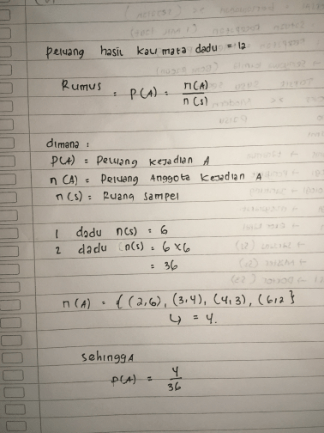 Peluang hasil kali mata dadu = 12
Rumus : P(A) = n(A)
n(s)
dimana :
P(A) = Peluang kejadian A
n (A) = Peluang Anggota kejadian A
n (s) = Ruang sampel
1 dadu n(s) = 6
2 dadu n(s) = 6 x 6
= 36
n (A) = { (2,6), (3,4), (4,3), (6,2 }
↳ = 4.
sehingga
P(A) = 4
36